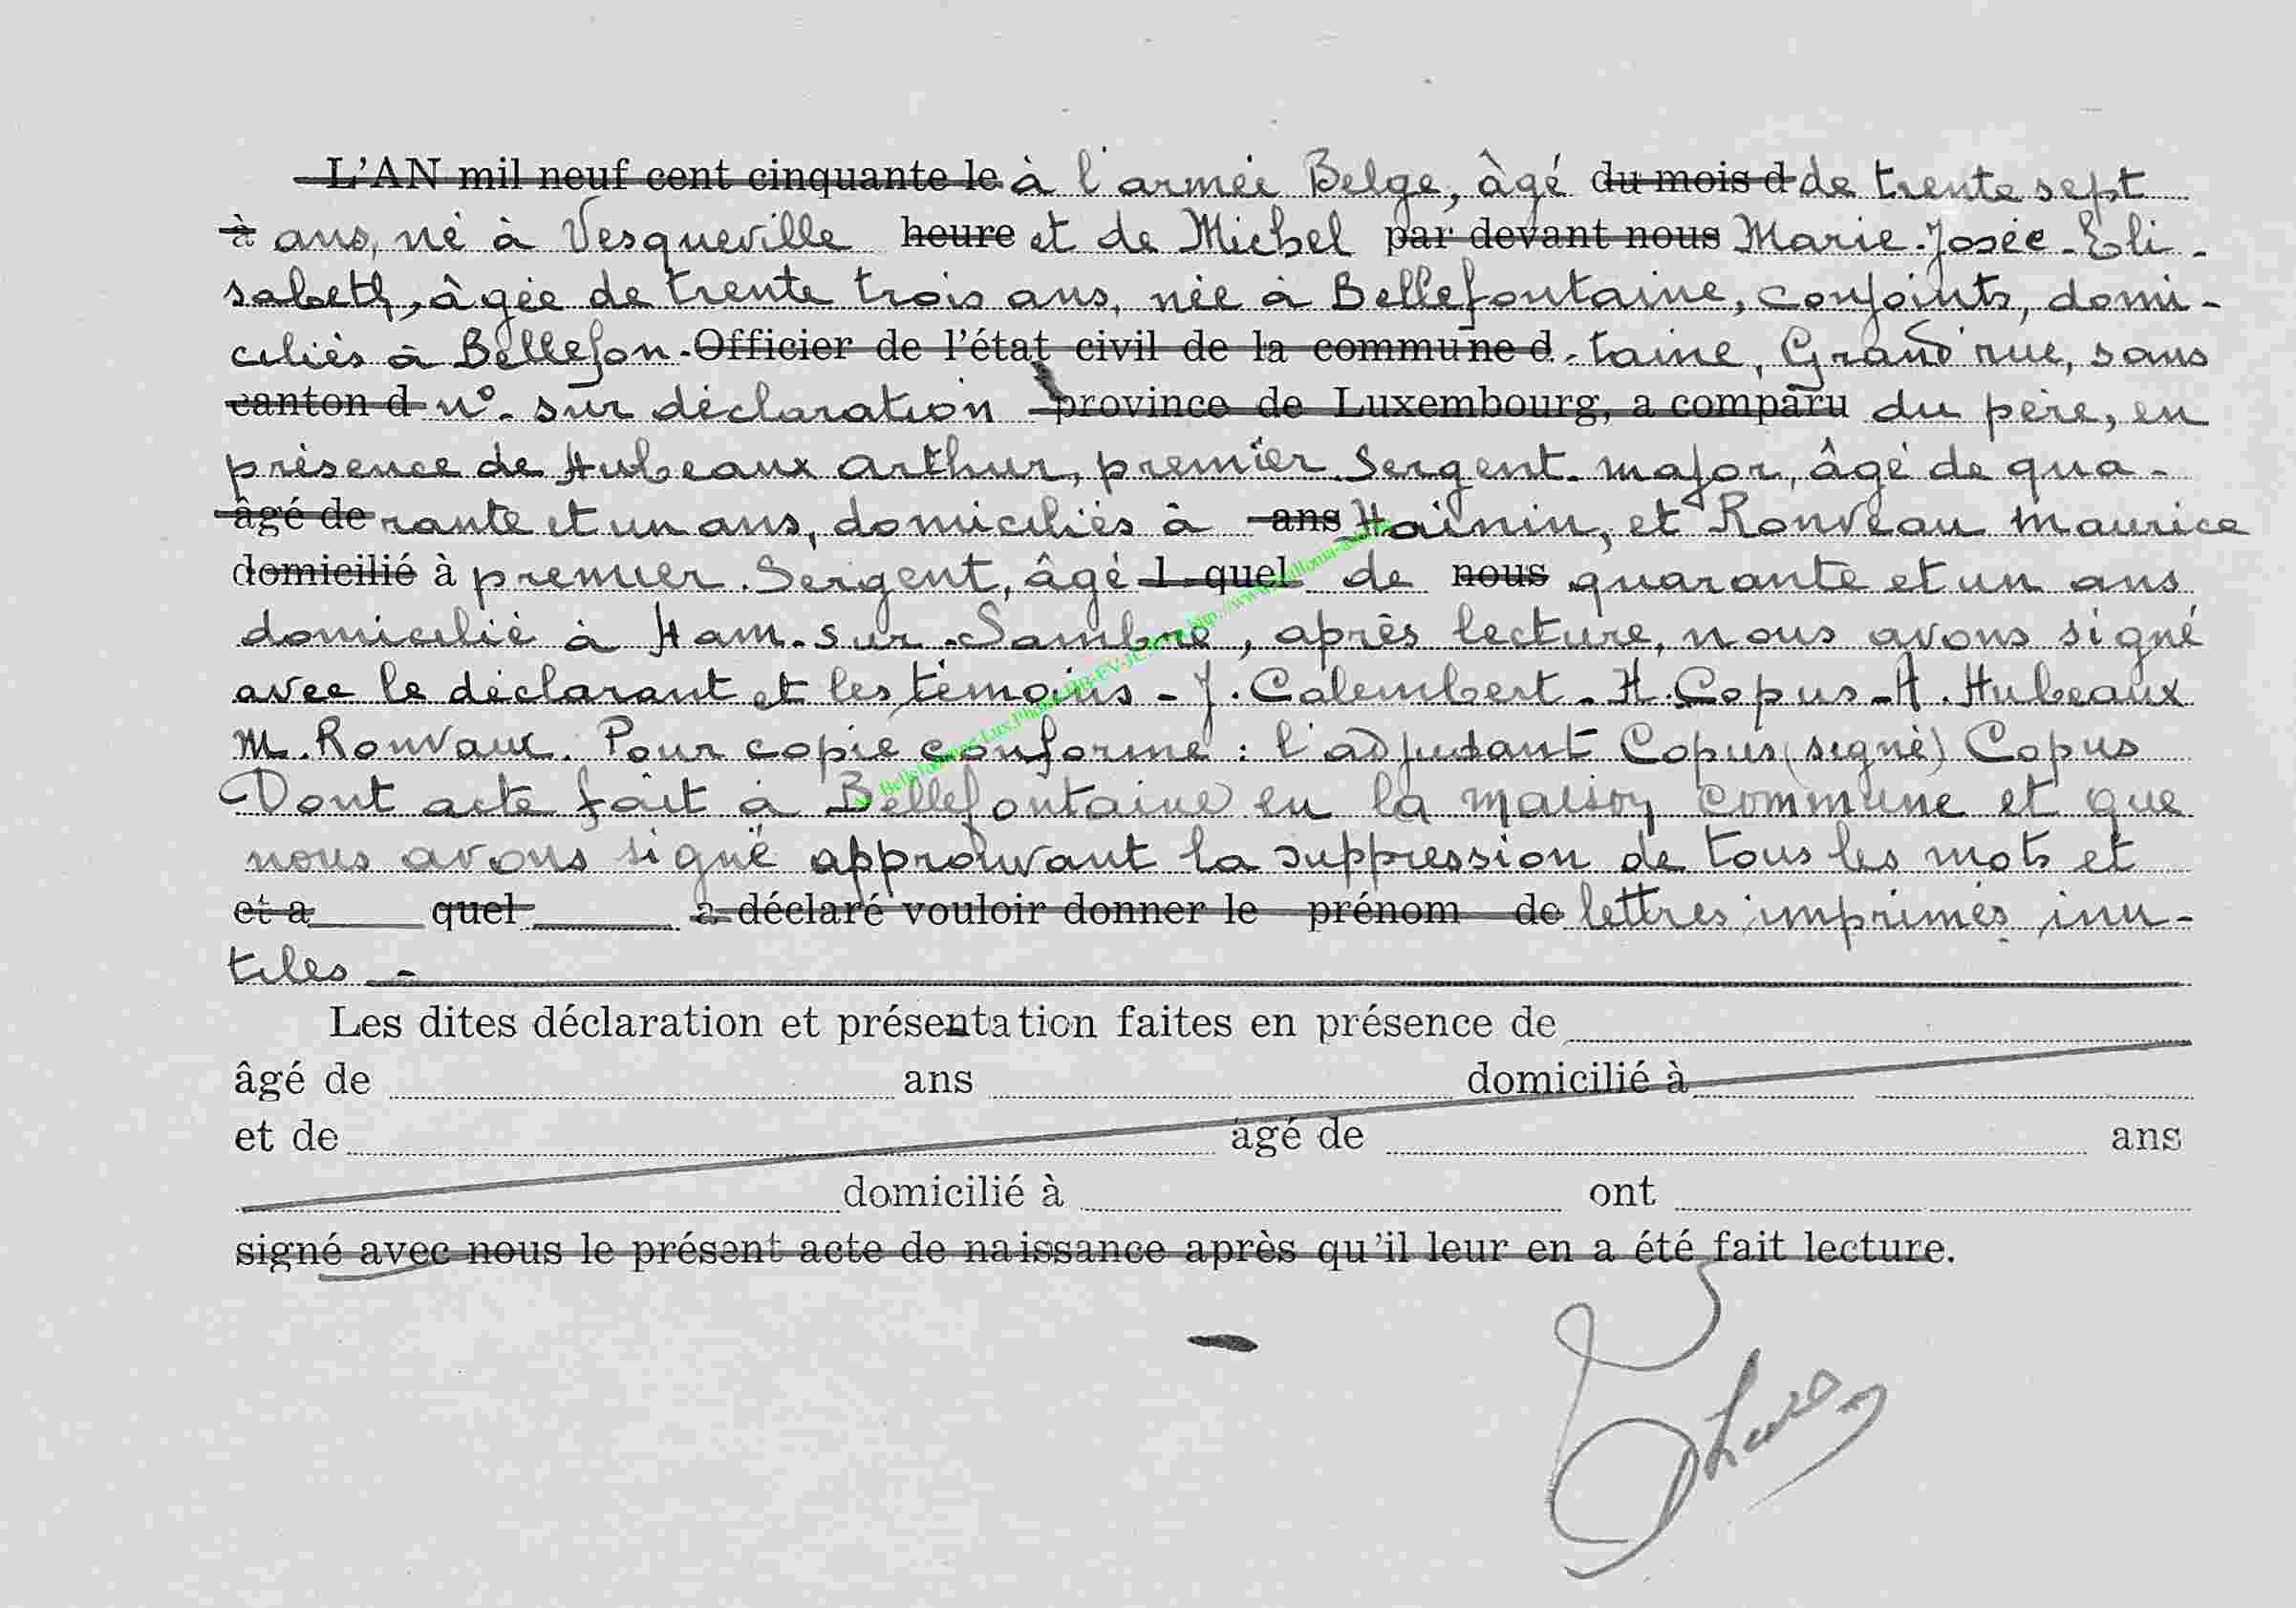 L'AN mil neuf cent cinquante le à l'armée Belge, âgé du mois d de trente sept
à ans, né à Vesqueville heure et de Michel par devant nous Marie-Josée-Eli-
sabeth, âgée de trente trois ans, née à Bellefontaine, conjoints, domi-
ciliés à Bellefon- Officier de l'état civil de la commune d -taine, Grand'rue, sans
canton d n°. sur déclaration province de Luxembourg, a comparu du père, en
présence de Hubeaux Arthur, premier Sergent-major, âgé de qua-
âgé de rante et un ans, domiciliés à ans Hainin, et Ronveau Maurice
domicilié à premier Sergent, âgé l quel de nous quarante et un ans
domicilié à Ham-sur-Sambre, après lecture, nous avons signé
avec le déclarant et les témoins - J. Calembert - H. Copus - A. Hubeaux
M. Ronvaux. Pour copie conforme : l'adjudant Copus (signé) Copus
Dont acte fait à Bellefontaine en la maison commune et que
nous avons signé approuvant la suppression de tous les mots et
et a quel a déclaré vouloir donner le prénom de lettres imprimés inu-
tiles -
Les dites déclaration et présentation faites en présence de
âgé de ans domicilié à
et de âgé de ans
domicilié à ont
signé avec nous le présent acte de naissance après qu'il leur en a été fait lecture.